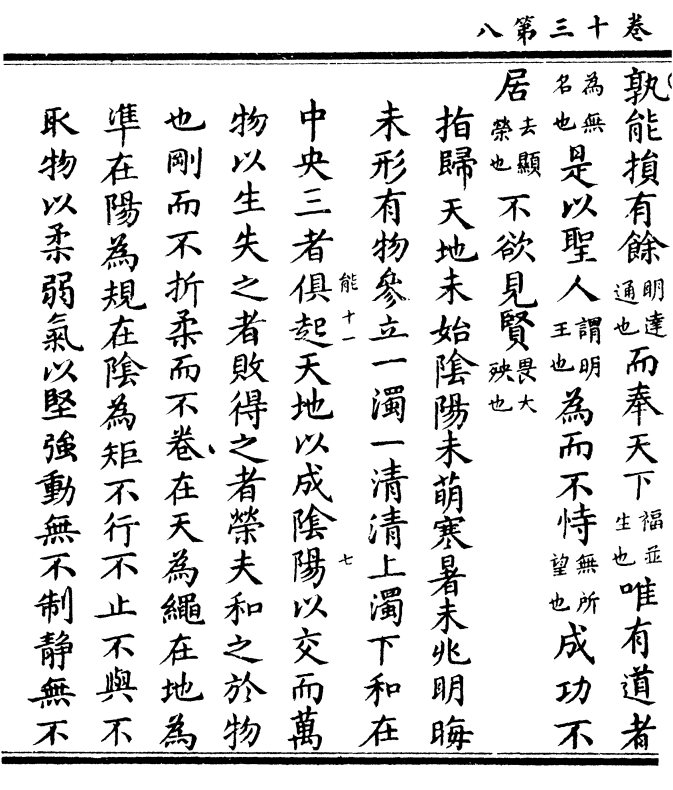 卷十三第八
孰能損有餘明達通也而奉天下福並生也唯有道者
為無名也是以聖人謂明王也為而不恃無所望也成功不
居去顯榮也不欲見賢畏大殃也
指歸天地未始陰陽未萌寒暑未兆明晦
未形有物參立一濁一清清上濁下和在
中央三者俱起天地以成陰陽以交而萬
能十一 七
物以生失之者敗得之者榮夫和之於物
也剛而不折柔而不卷在天為繩在地為
準在陽為規在陰為矩不行不止不與不
取物以柔弱氣以堅強動無不制靜無不